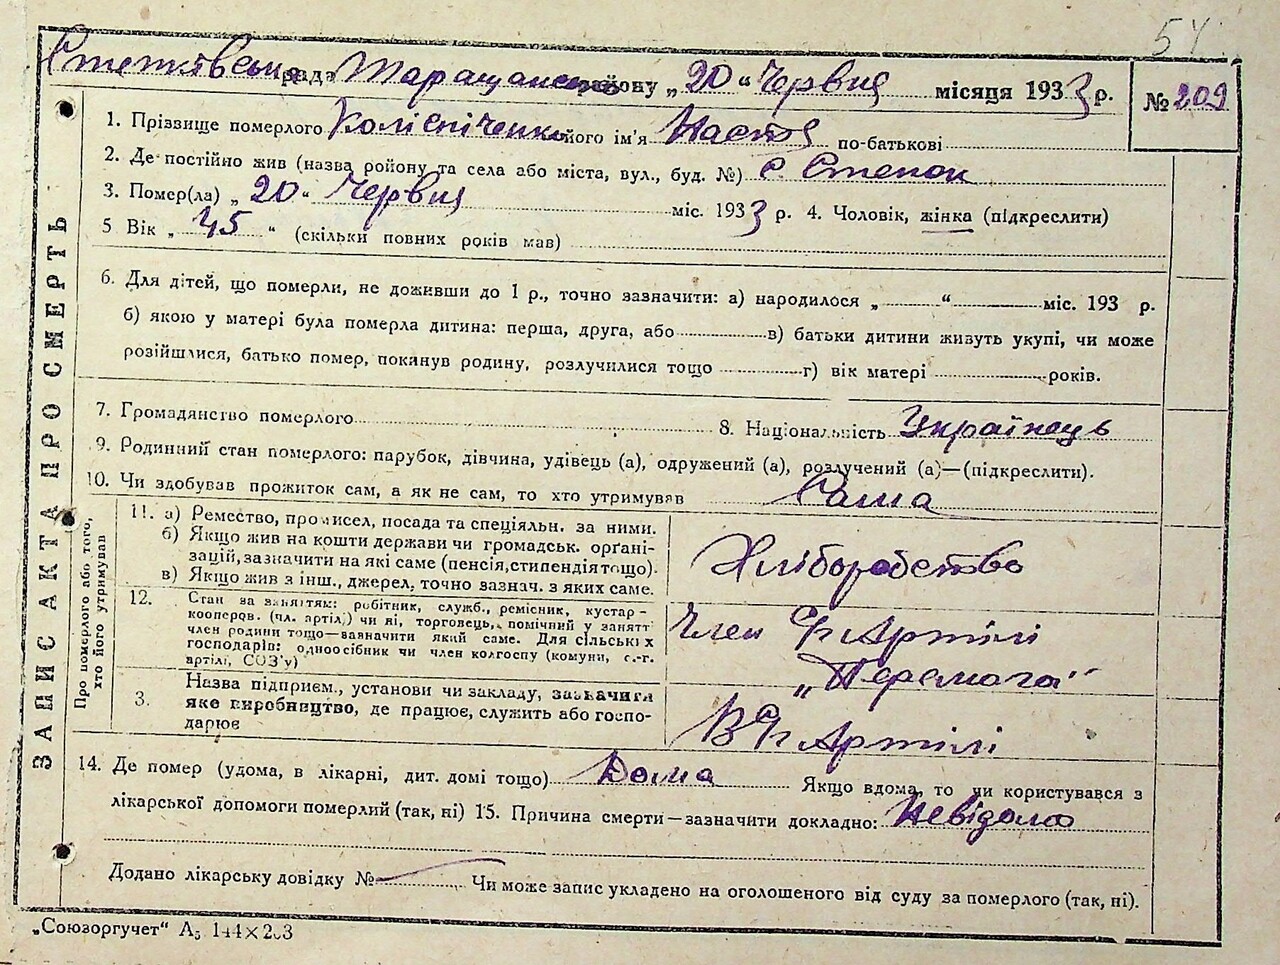 54
Степківська рада Таращанськ району „20 “ Червня місяця 1933 р. № 209
1. Прізвище померлого його ім'я Настя по-батькові
2. Де постійно жив (назва ройону та села або міста, вул., буд. №) с Степок
3. Помер(ла) „ 20 “ Червня міс. 1933 р. 4. Чоловік, жінка (підкреслити)
5 Вік „ 45 “ (скільки повних років мав)
6. Для дітей, що померли, не доживши до 1 р., точно зазначити: а) народилося „ “ міс. 193 р.
б) якою у матері була померла дитина: перша, друга, або в) батьки дитини живуть укупі, чи може
розійшлися, батько помер, покинув родину, розлучилися тощо г) вік матері років.
7. Громадянство померлого 8. Національність Українець
9. Родинний стан померлого: парубок, дівчина, удівець (а), одружений (а), розлучений (а)—(підкреслити).
10. Чи здобував прожиток сам, а як не сам, то хто утримував Сама
ЗАПИС АКТА ПРО СМЕРТЬ
Про померлого або того,
хто його утримував
11. а) Ремество, промисел, посада та спеціяльн. за ними.
б) Якщо жив на кошти держави чи громадськ. орґані-
зацій, зазначити на які саме (пенсія, стипендія тощо).
в) Якщо жив з інш., джерел, точно зазнач. з яких саме.
Хліборобство
12. Стан за заняттям: робітник, служб., ремісник, кустар-
кооперов. (чл. артіл.) чи ні, торговець, помічний у занятт
член родини тощо—зазначити який саме. Для сільськ х
господарів: одноосібник чи член колгоспу (комуни, с.-г.
артілі, СОЗ'у)
Член Артілі
„Перемога“
3. Назва підприєм., установи чи закладу, зазначити
яке виробництво, де працює, служить або госпо-
дарює
В Артілі
14. Де помер (удома, в лікарні, дит. домі тощо) Дома Якщо вдома, то чи користувався з
лікарської допомоги померлий (так, ні) 15. Причина смерти—зазначити докладно: Невідома
Додано лікарську довідку № Чи може запис укладено на оголошеного від суду за померлого (так, ні).
„Союзоргучет“ А5 144×203